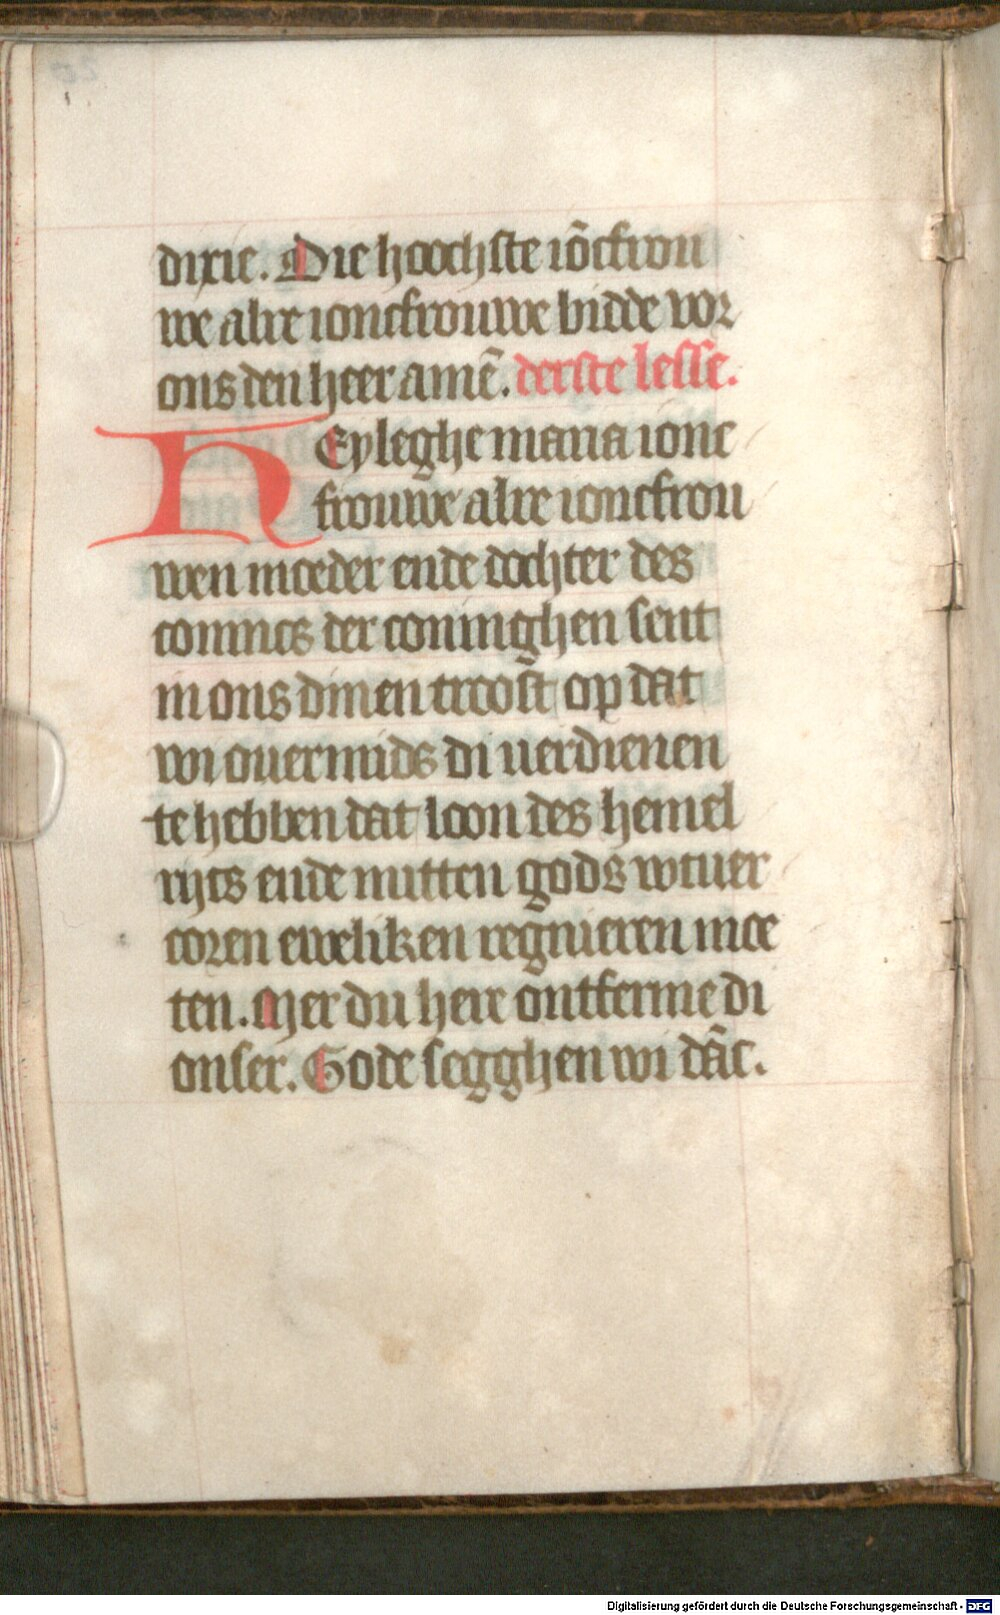 dixie. Die hoochste iōcfrou
we alre ioncfrouwe bidde vor
ons den heer amē. derste lesse.
HEyleghe maria ionc
frouwe alre ioncfrou
wen moeder ende dochter des
conincs der coninghen sent
in ons dinen troost op dat
wi ouermids di uerdienen
te hebben dat loon des hemel
rijcs ende mitten gods wtuer
coren eweliken regnieren moe
ten. Mer du here ontferme di
onser. Gode segghen wi dāc.
Digitalisierung gefördert durch die Deutsche Forschungsgemeinschaft - DFG